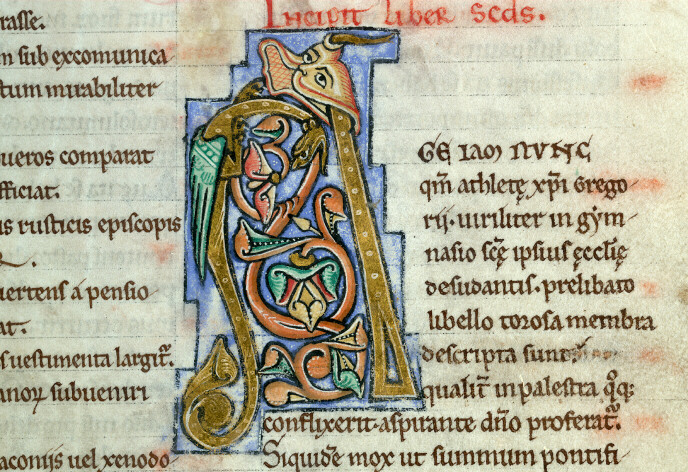 rasse.
m sub excomunica
tum mirabiliter
ueros comparat
fficiat.
is rusticis episcopis
uertens a pensio
at.
s uestimenta largit̃.
anoꝝ subueniri
aconijs uel xenodo
Incipit liber scđs.
AGE IAM NVNC
qm̃ athletę xp̃i Grego-
rij. uiriliter in gym-
nasio scę̃ ipsius ęcclię
desudantis. prelibato
libello torosa membra
descripta sunt.
qualit̃ in palestra q̊q;
conflixerit. aspirante dño proferat̃.
Siquidẽ mox ut summum pontifi-